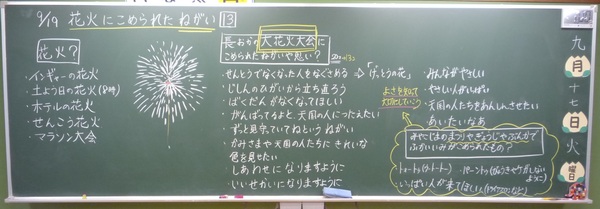 9/19 花火にこめられたねがい 13
花火?
・インギャーの花火
・土よう日の花火(8時)
・ホテルの花火
・せんこう花火
・マラソン大会
長おかの大花火大会に
こめられたねがいや思い?
せんとうでなくなった人をなぐさめる→「げっとうの花」
じしんのひがいから立ち直ろう
ばくだんがなくなってほしい
がんばってるよと天国の人につたえたい
ずっと見守っていてねというねがい
かみさまや天国の人たちにきれいな
色を見せたい
しあわせになりますように
いいせかいになりますように
みんながやさしい
・やさしい人がいっぱい
・天国の人たちをあんしんさせたい
・あいたいなあ
よさを知って
大切にしていこう
みやこじまのまつりやぎょうじやぶんかで
ふかいいみがこめられたもの?
九月十七日火曜日